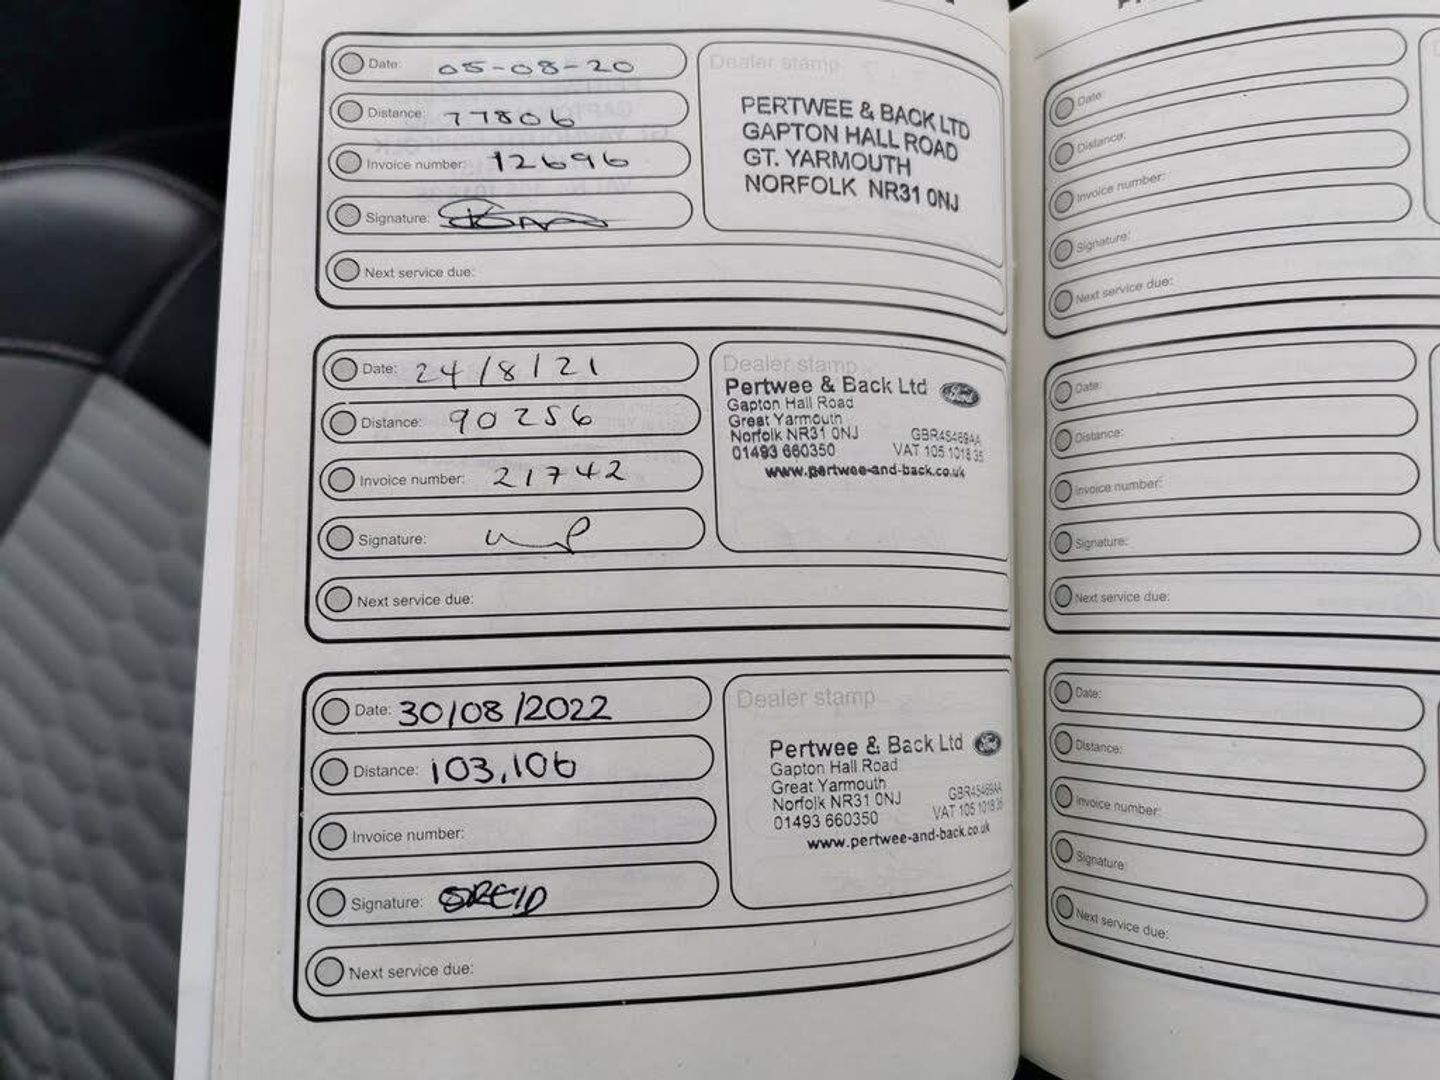 Date: 05-08-20
Distance: 77806
Invoice number: 12696
Signature:
Next service due:
Dealer stamp
PERTWEE & BACK LTD
GAPTON HALL ROAD
GT. YARMOUTH
NORFOLK NR31 0NJ
Date: 24/8/21
Distance: 90256
Invoice number: 21742
Signature:
Next service due:
Dealer stamp
Pertwee & Back Ltd Ford
Gapton Hall Road
Great Yarmouth
Norfolk NR31 0NJ GBR45469AA
01493 660350 VAT 105 1018 35
www.pertwee-and-back.co.uk
Date: 30/08/2022
Distance: 103,106
Invoice number:
Signature:
Next service due:
Dealer stamp
Pertwee & Back Ltd Ford
Gapton Hall Road
Great Yarmouth
Norfolk NR31 0NJ GBR45469AA
01493 660350 VAT 105 1018 35
www.pertwee-and-back.co.uk
Date:
Distance:
Invoice number:
Signature:
Next service due:
Date:
Distance:
Invoice number:
Signature:
Next service due:
Date:
Distance:
Invoice number:
Signature:
Next service due: